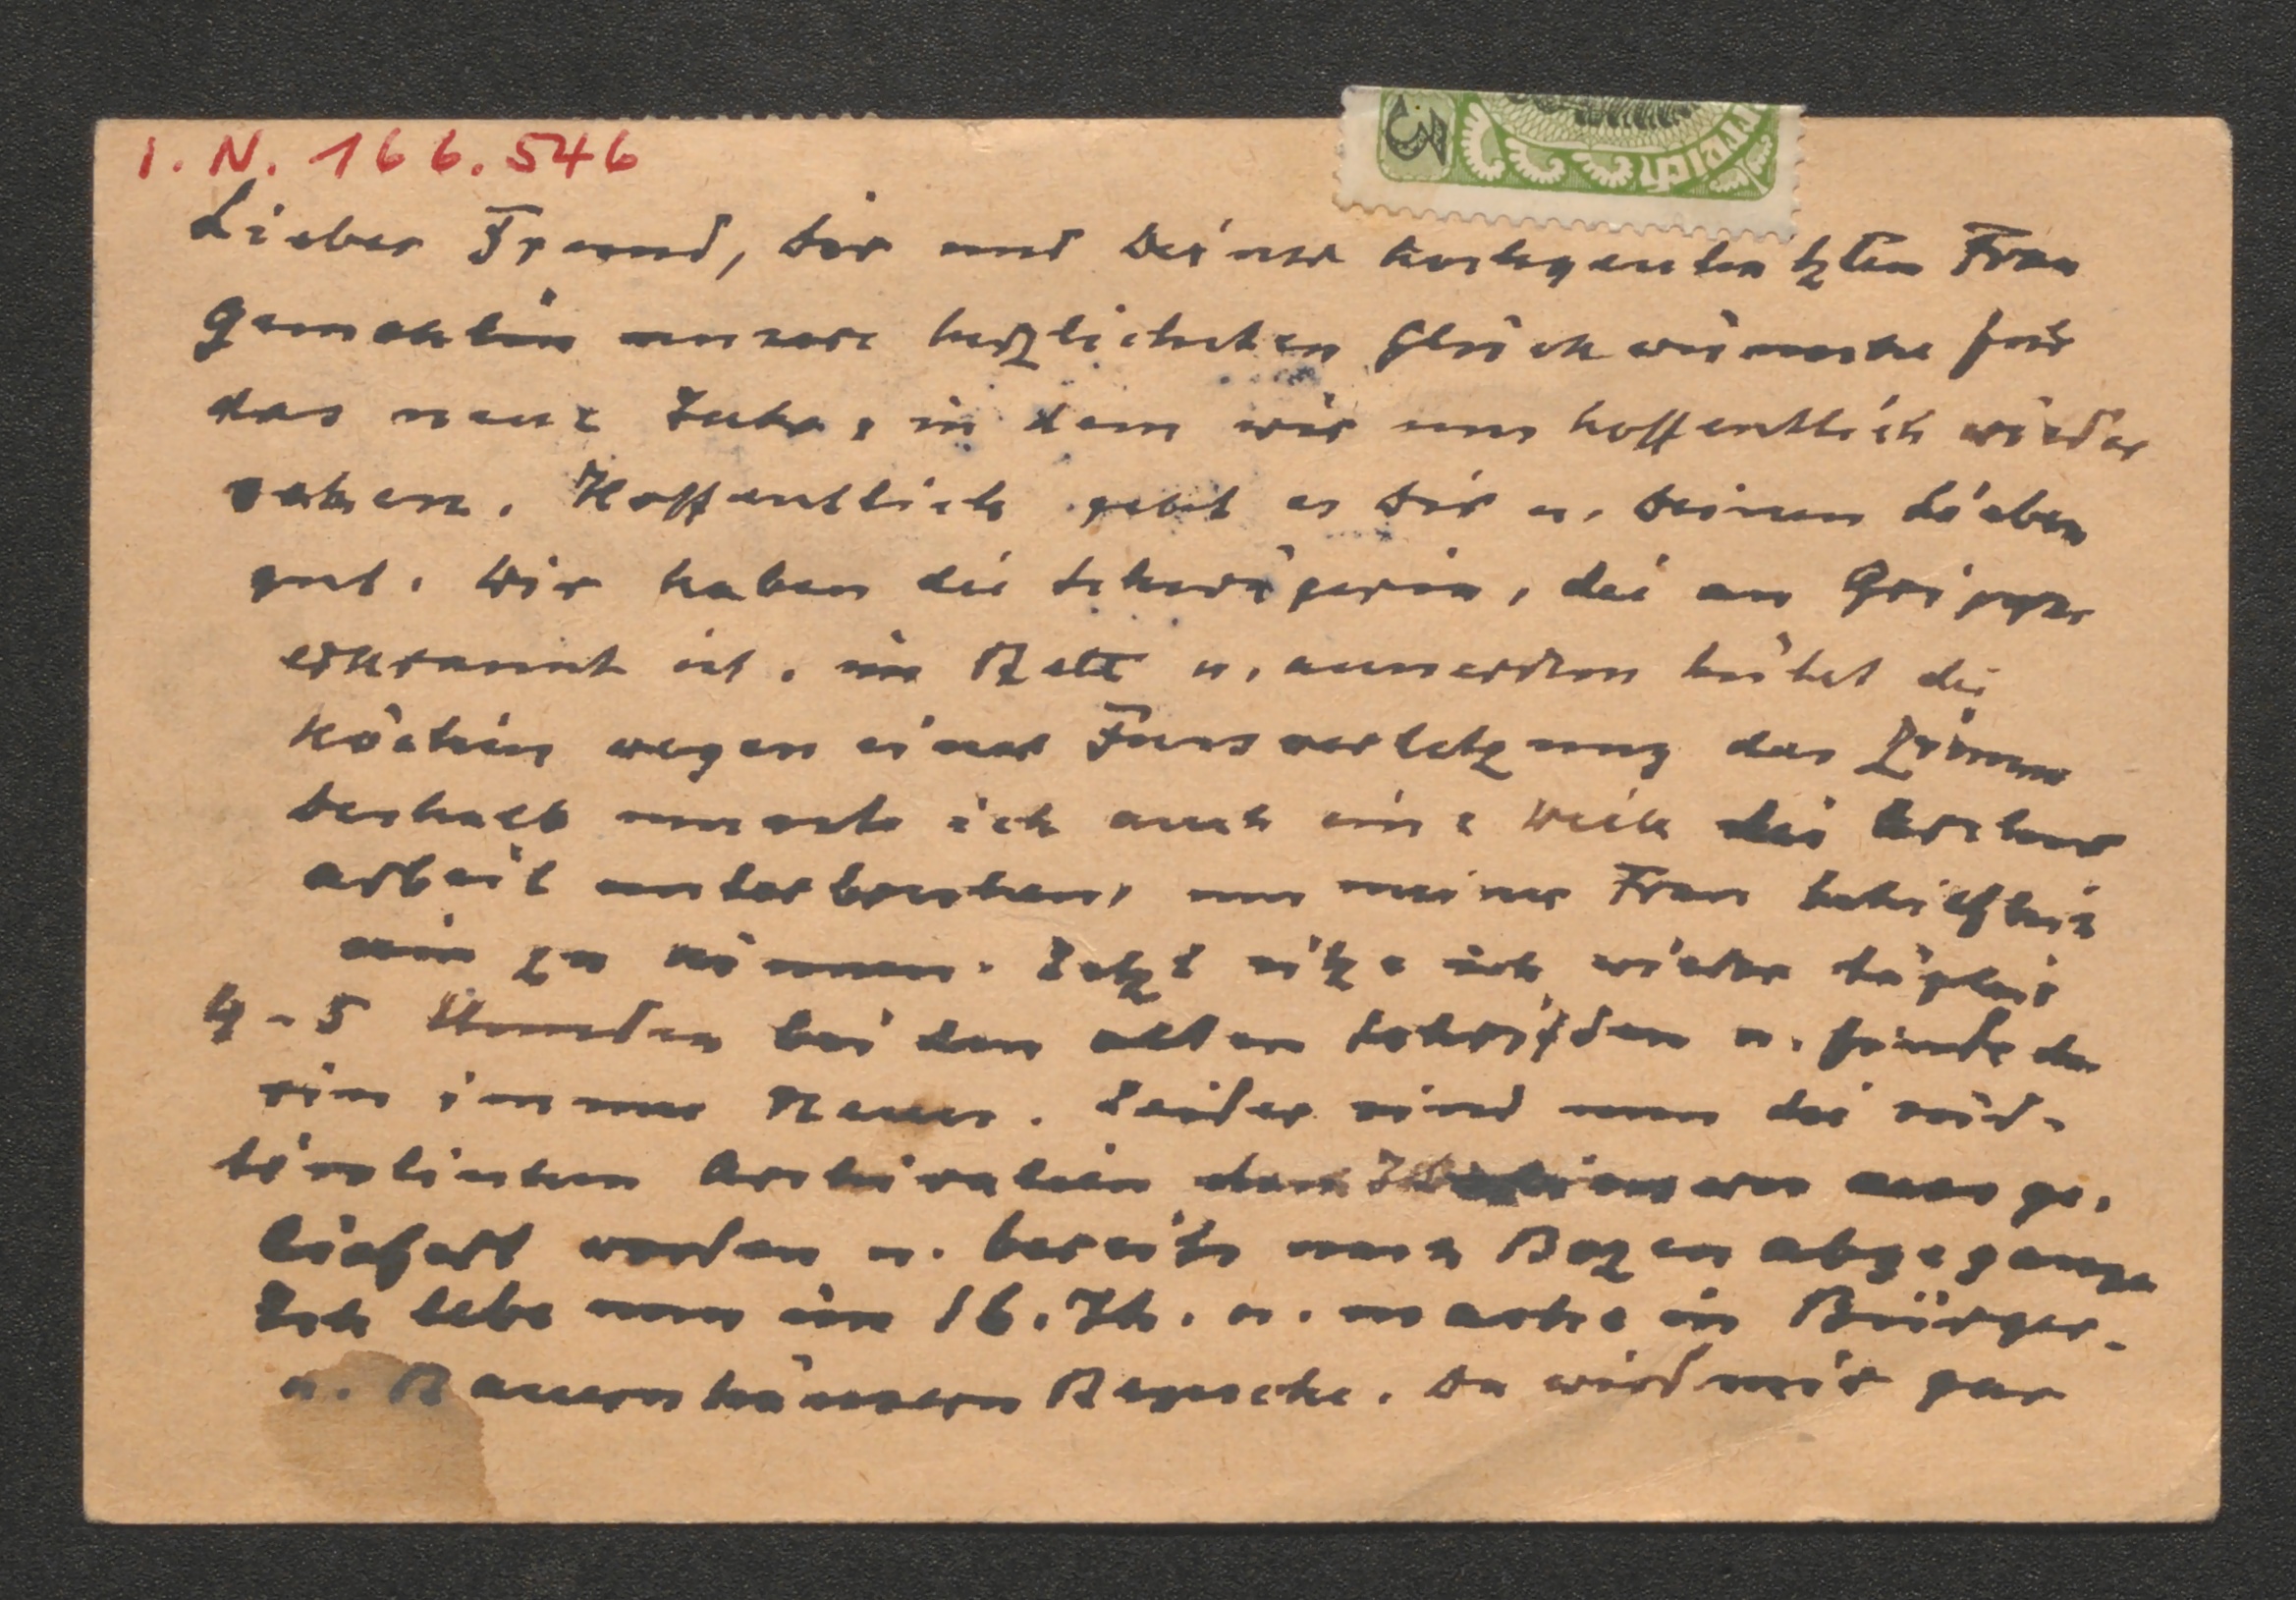 I. N. 166.546
Lieber Freund, Dir und Deiner hochgeschätzten Frau
Gemahlin unsere herzlichsten Glückwünsche für
das neue Jahr, in dem wir uns hoffentlich wieder
sehen. Hoffentlich geht es Dir u. Deinen Lieben
gut. Wir haben die Schwägerin, die an Grippe
erkrankt ist, im Bett u. ausserdem hütet die
Köchin wegen einer Fussverletzung das Zimmer
Deshalb musste ich auch eine Weile die Archiv
arbeit unterbrechen, um meiner Frau behilflich
sein zu können. Jetzt sitze ich wieder täglich
4-5 Stunden bei den alten Schriften u. finde da
rin immer Neues. Leider sind nun die süd-
tirolischen Archivalien den Italienern ausge-
liefert worden u. bereits nach Bozen abgegangen
Ich lebe nun im 16. Jh. u. mache in Bürger-
u. Bauernhäusern Besuche. Da wird mir gar
3
rreich